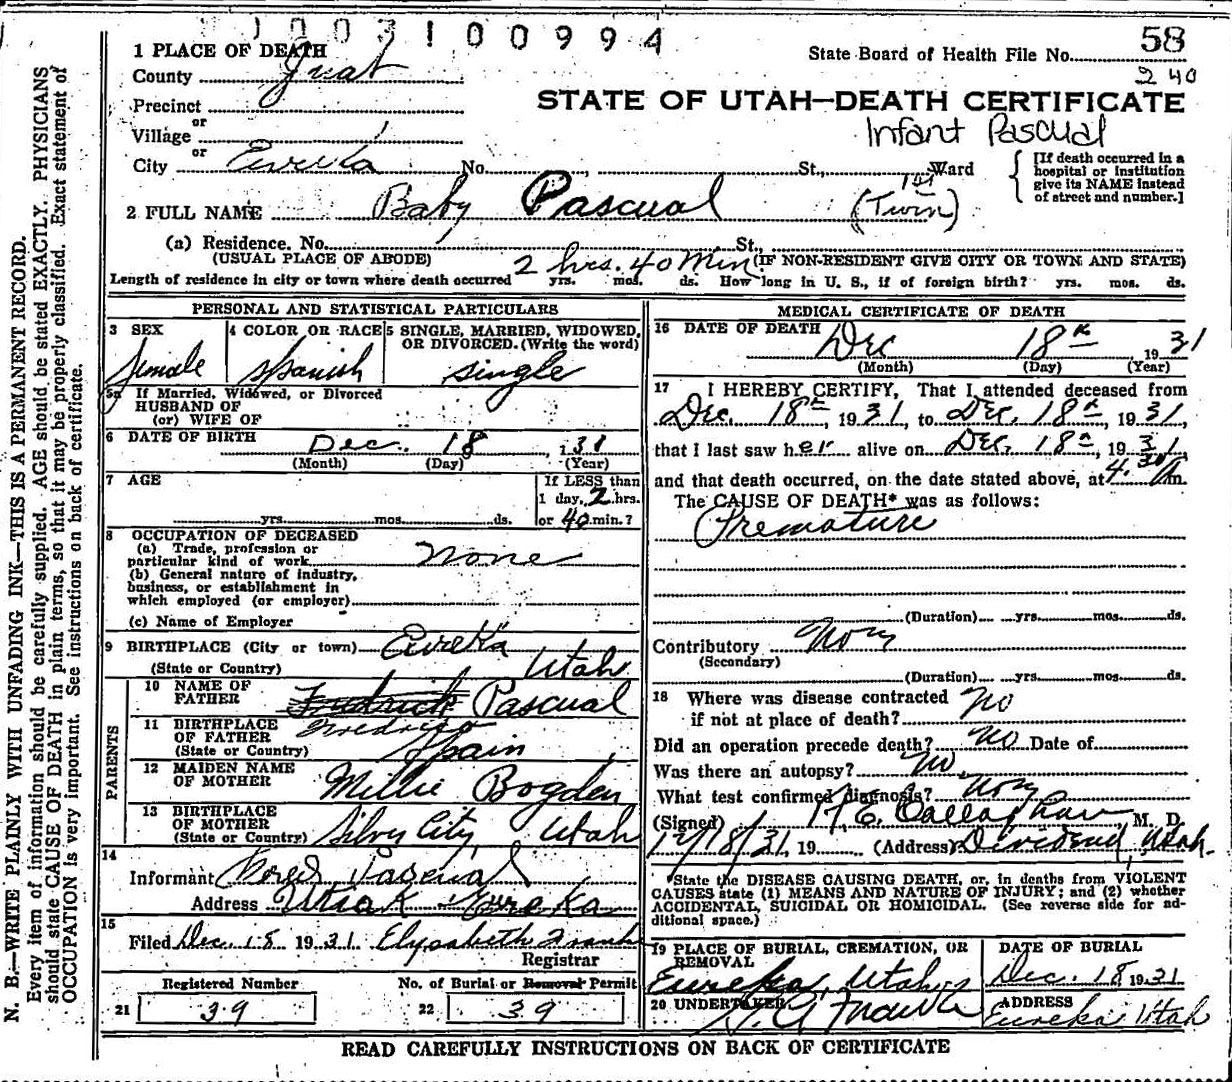 1003100994
1 PLACE OF DEATH
State Board of Health File No. 58
240
County Juab
STATE OF UTAH—DEATH CERTIFICATE
Precinct
or
Infant Pascual
Village
or
City Eureka No. St., Ward
[If death occurred in a hospital or institution give its NAME instead of street and number.]
2 FULL NAME Baby Pascual 1st (Twin)
(a) Residence. No. St.,
(USUAL PLACE OF ABODE) 2 hrs. 40 Min (IF NON-RESIDENT GIVE CITY OR TOWN AND STATE)
Length of residence in city or town where death occurred yrs. mos. ds. How long in U. S., if of foreign birth? yrs. mos. ds.
PERSONAL AND STATISTICAL PARTICULARS
3 SEX
female
4 COLOR OR RACE
Spanish
5 SINGLE, MARRIED, WIDOWED, OR DIVORCED. (Write the word)
single
5a If Married, Widowed, or Divorced
HUSBAND OF
(or) WIFE OF
6 DATE OF BIRTH Dec. 18, 1931
(Month) (Day) (Year)
7 AGE
yrs. mos. ds.
If LESS than
1 day, 2 hrs.
or 40 min.?
8 OCCUPATION OF DECEASED
(a) Trade, profession or
particular kind of work None
(b) General nature of industry,
business, or establishment in
which employed (or employer)
(c) Name of Employer
9 BIRTHPLACE (City or town) Eureka
(State or Country) Utah
PARENTS
10 NAME OF
FATHER Fredrick Pascual
11 BIRTHPLACE
OF FATHER
(State or Country) Spain
12 MAIDEN NAME
OF MOTHER Millie Bogden
13 BIRTHPLACE
OF MOTHER
(State or Country) Silver City, Utah
14
Informant Pascual
Address Eureka
15
Filed Dec. 18 1931 Elysabeth Frank
Registrar
Registered Number
21 39
No. of Burial or Removal Permit
22 39
MEDICAL CERTIFICATE OF DEATH
16 DATE OF DEATH Dec 18th 1931
(Month) (Day) (Year)
17 I HEREBY CERTIFY, That I attended deceased from
Dec. 18th, 1931, to Dec. 18th, 1931,
that I last saw her alive on Dec. 18th, 1931,
and that death occurred, on the date stated above, at 4.30 m.
The CAUSE OF DEATH* was as follows:
Premature
(Duration) yrs. mos. ds.
Contributory
(Secondary)
(Duration) yrs. mos. ds.
18 Where was disease contracted
if not at place of death? No
Did an operation precede death? No Date of
Was there an autopsy? No
What test confirmed diagnosis?
(Signed) Callaghan, M. D.
12/18/31, 19 (Address) Dividend, Utah.
*State the DISEASE CAUSING DEATH, or, in deaths from VIOLENT
CAUSES state (1) MEANS AND NATURE OF INJURY; and (2) whether
ACCIDENTAL, SUICIDAL OR HOMICIDAL. (See reverse side for ad-
ditional space.)
19 PLACE OF BURIAL, CREMATION, OR
REMOVAL
Eureka, Utah
DATE OF BURIAL
Dec. 18 1931
20 UNDERTAKER
ADDRESS
Eureka Utah
READ CAREFULLY INSTRUCTIONS ON BACK OF CERTIFICATE
N. B.—WRITE PLAINLY WITH UNFADING INK—THIS IS A PERMANENT RECORD.
Every item of information should be carefully supplied. AGE should be stated EXACTLY. PHYSICIANS
should state CAUSE OF DEATH in plain terms, so that it may be properly classified. Exact statement of
OCCUPATION is very important. See instructions on back of certificate.